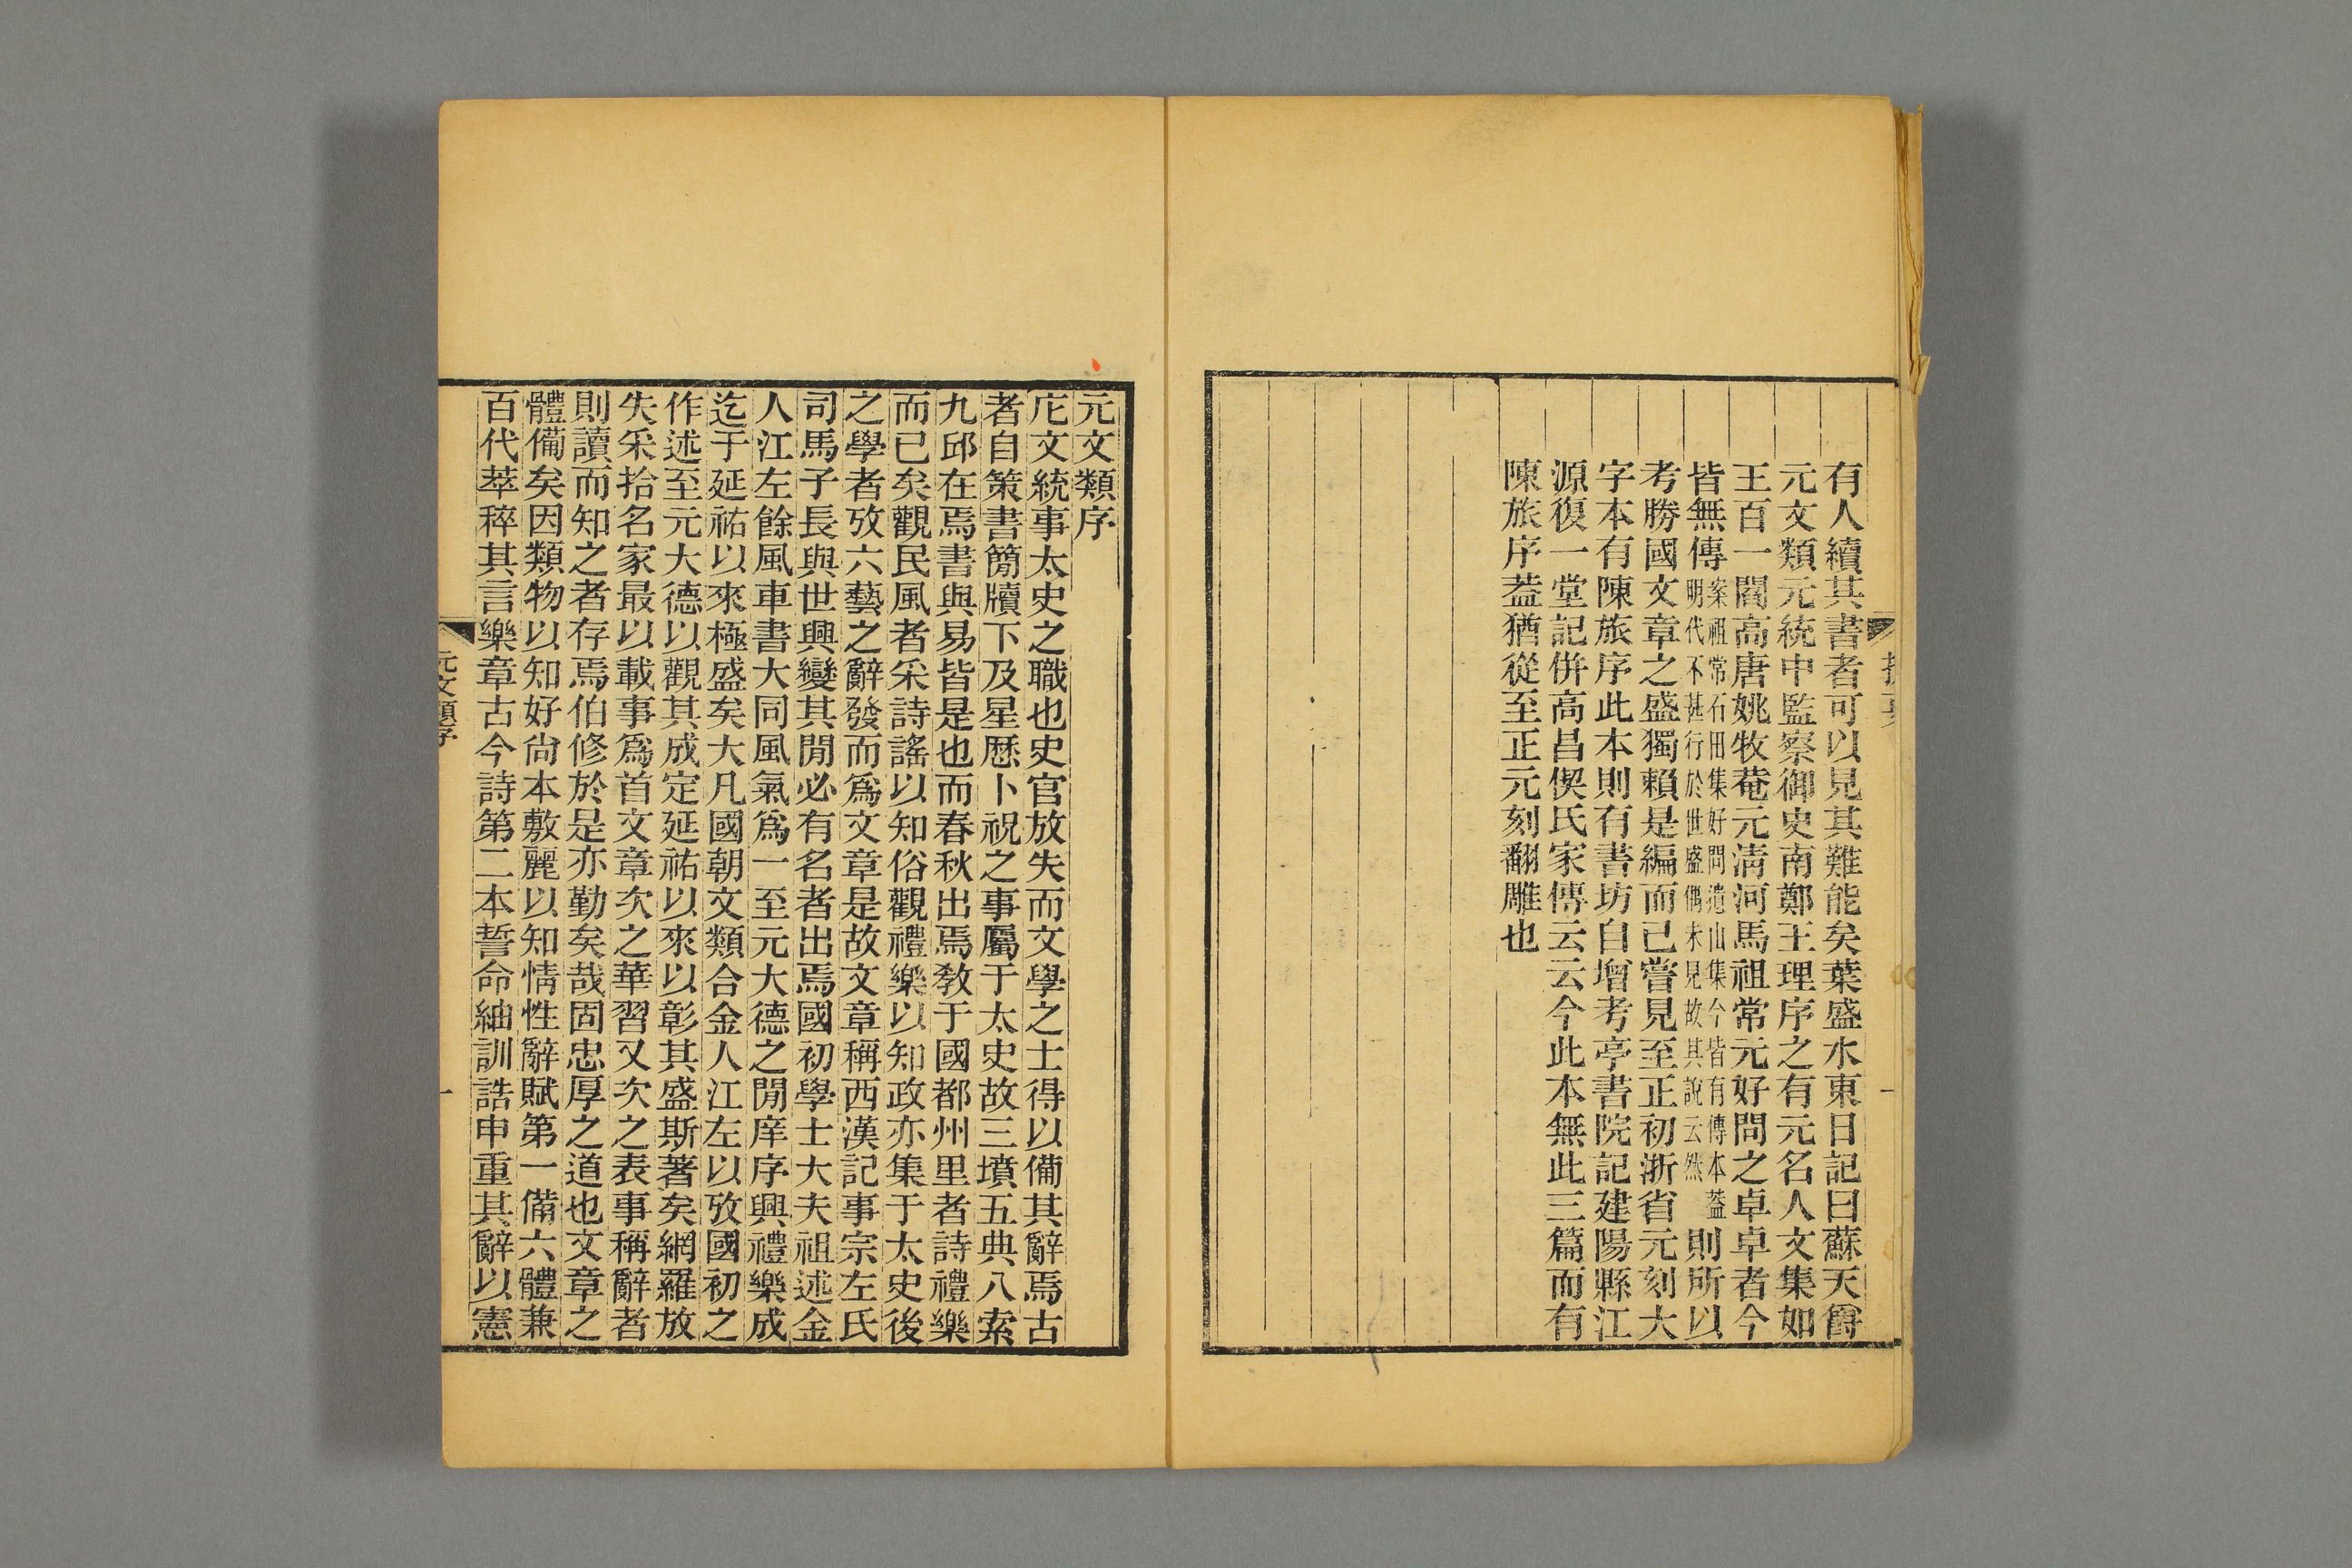 有人續其書者可以見其難能矣葉盛水東日記曰蘇天爵
元文類元統中監察御史南鄭王理序之有元名人文集如
王百一閻高唐姚牧菴元淸河馬祖常元好問之卓卓者今
皆無傳案祖常石田集好問遺山集今皆有傳本葢明代不甚行於世盛偶未見故其說云然則所以
考勝國文章之盛獨賴是編而已嘗見至正初浙省元刻大
字本有陳旅序此本則有書坊自增考亭書院記建陽縣江
源復一堂記併高昌偰氏家傳云云今此本無此三篇而有
陳旅序葢猶從至正元刻翻雕也
元文類序
庀文統事太史之職也史官放失而文學之士得以備其辭焉古
者自策書簡牘下及星厯卜祝之事屬于太史故三墳五典八索
九邱在焉書與易皆是也而春秋出焉敎于國都州里者詩禮樂
而已矣觀民風者采詩謠以知俗觀禮樂以知政亦集于太史後
之學者攷六藝之辭發而爲文章是故文章稱西漢記事宗左氏
司馬子長與世興變其閒必有名者出焉國初學士大夫祖述金
人江左餘風車書大同風氣爲一至元大德之閒庠序興禮樂成
迄于延祐以來極盛矣大凡國朝文類合金人江左以攷國初之
作述至元大德以觀其成定延祐以來以彰其盛斯著矣網羅放
失采拾名家最以載事爲首文章次之華習又次之表事稱辭者
則讀而知之者存焉伯修於是亦勤矣哉固忠厚之道也文章之
體備矣因類物以知好尙本敷麗以知情性辭賦第一備六體兼
百代萃稡其言樂章古今詩第二本誓命紬訓誥申重其辭以憲
元文類序
一